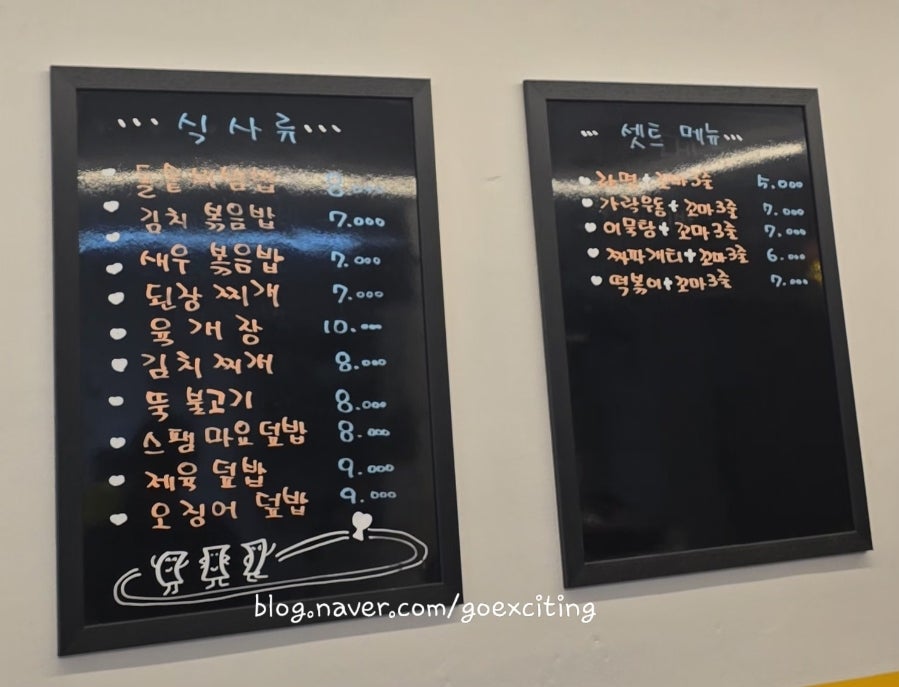 ... 식사류 ...
돌솥비빔밥 8.000
김치 볶음밥 7.000
새우 볶음밥 7.000
된장 찌개 7.000
육개장 10.000
김치 찌개 8.000
뚝 불고기 8.000
스팸 마요 덮밥 8.000
제육 덮밥 9.000
오징어 덮밥 9.000
... 셋트 메뉴 ...
라면 + 꼬마 3줄 5.000
가락우동 + 꼬마 3줄 7.000
어묵탕 + 꼬마 3줄 7.000
짜파게티 + 꼬마 3줄 6.000
떡볶이 + 꼬마 3줄 7.000
blog.naver.com/goexciting